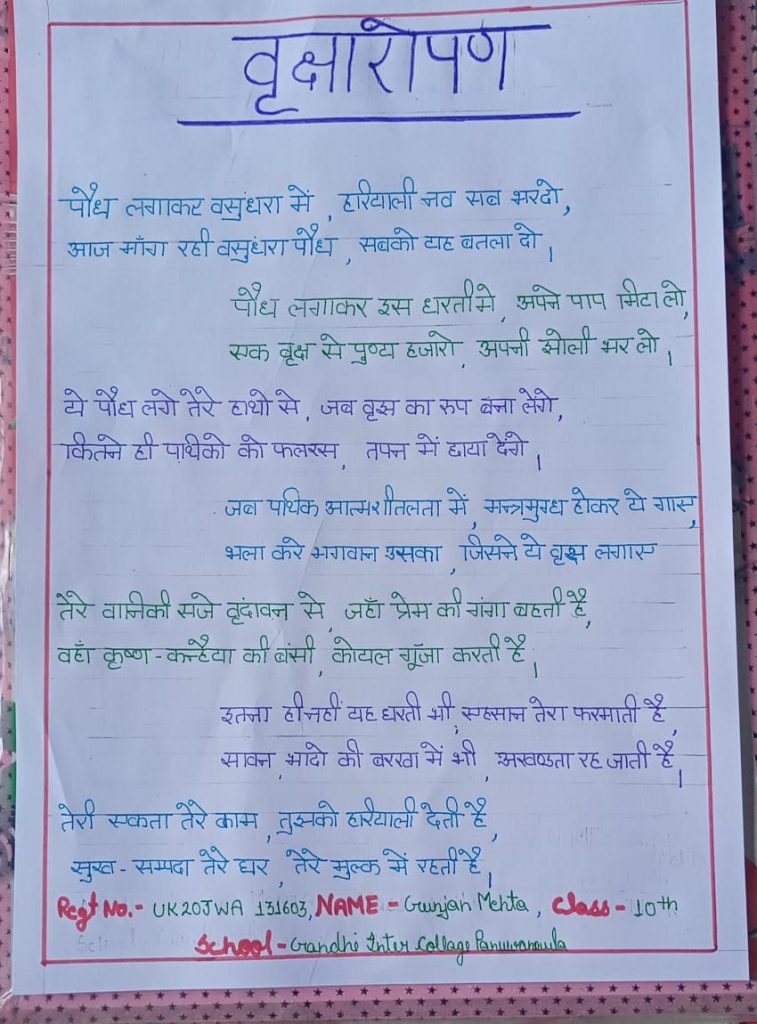 वृक्षारोपण
पौध लगाकर वसुंधरा में , हरियाली नव सब भरदो,
आज माँग रही वसुंधरा पौध , सबको यह बतला दो ।
पौध लगाकर इस धरती मे , अपने पाप मिटा लो,
एक वृक्ष से पुण्य हजारो , अपनी झोली भर लो ।
ये पौध लगे तेरे हाथो से , जब वृक्ष का रुप बना लेंगे,
कितने ही पथिको को फलरस, तपन में छाया देंगे ।
जब पथिक आत्मशीतलता में, मन्त्रमुग्ध होकर ये गाए,
भला करे भगवान उसका , जिसने ये वृक्ष लगाए
तेरे वानिकी सजे वृंदावन से , जहाँ प्रेम की गंगा बहती है,
वहाँ कृष्ण - कन्हैया की बंसी , कोयल गूँजा करती है ।
इतना ही नहीं यह धरती भी, एहसान तेरा फरमाती है,
सावन , भादो की बरखा में भी , अखण्डता रह जाती है ।
तेरी एकता तेरे काम , तुझको हरियाली देती है,
सुख - सम्पदा तेरे घर , तेरे मुल्क में रहती है ।
Regt No.- UK20JWA 131603, NAME - Gunjan Mehta , Class - 10th
School - Gandhi Inter College Panuwanaula